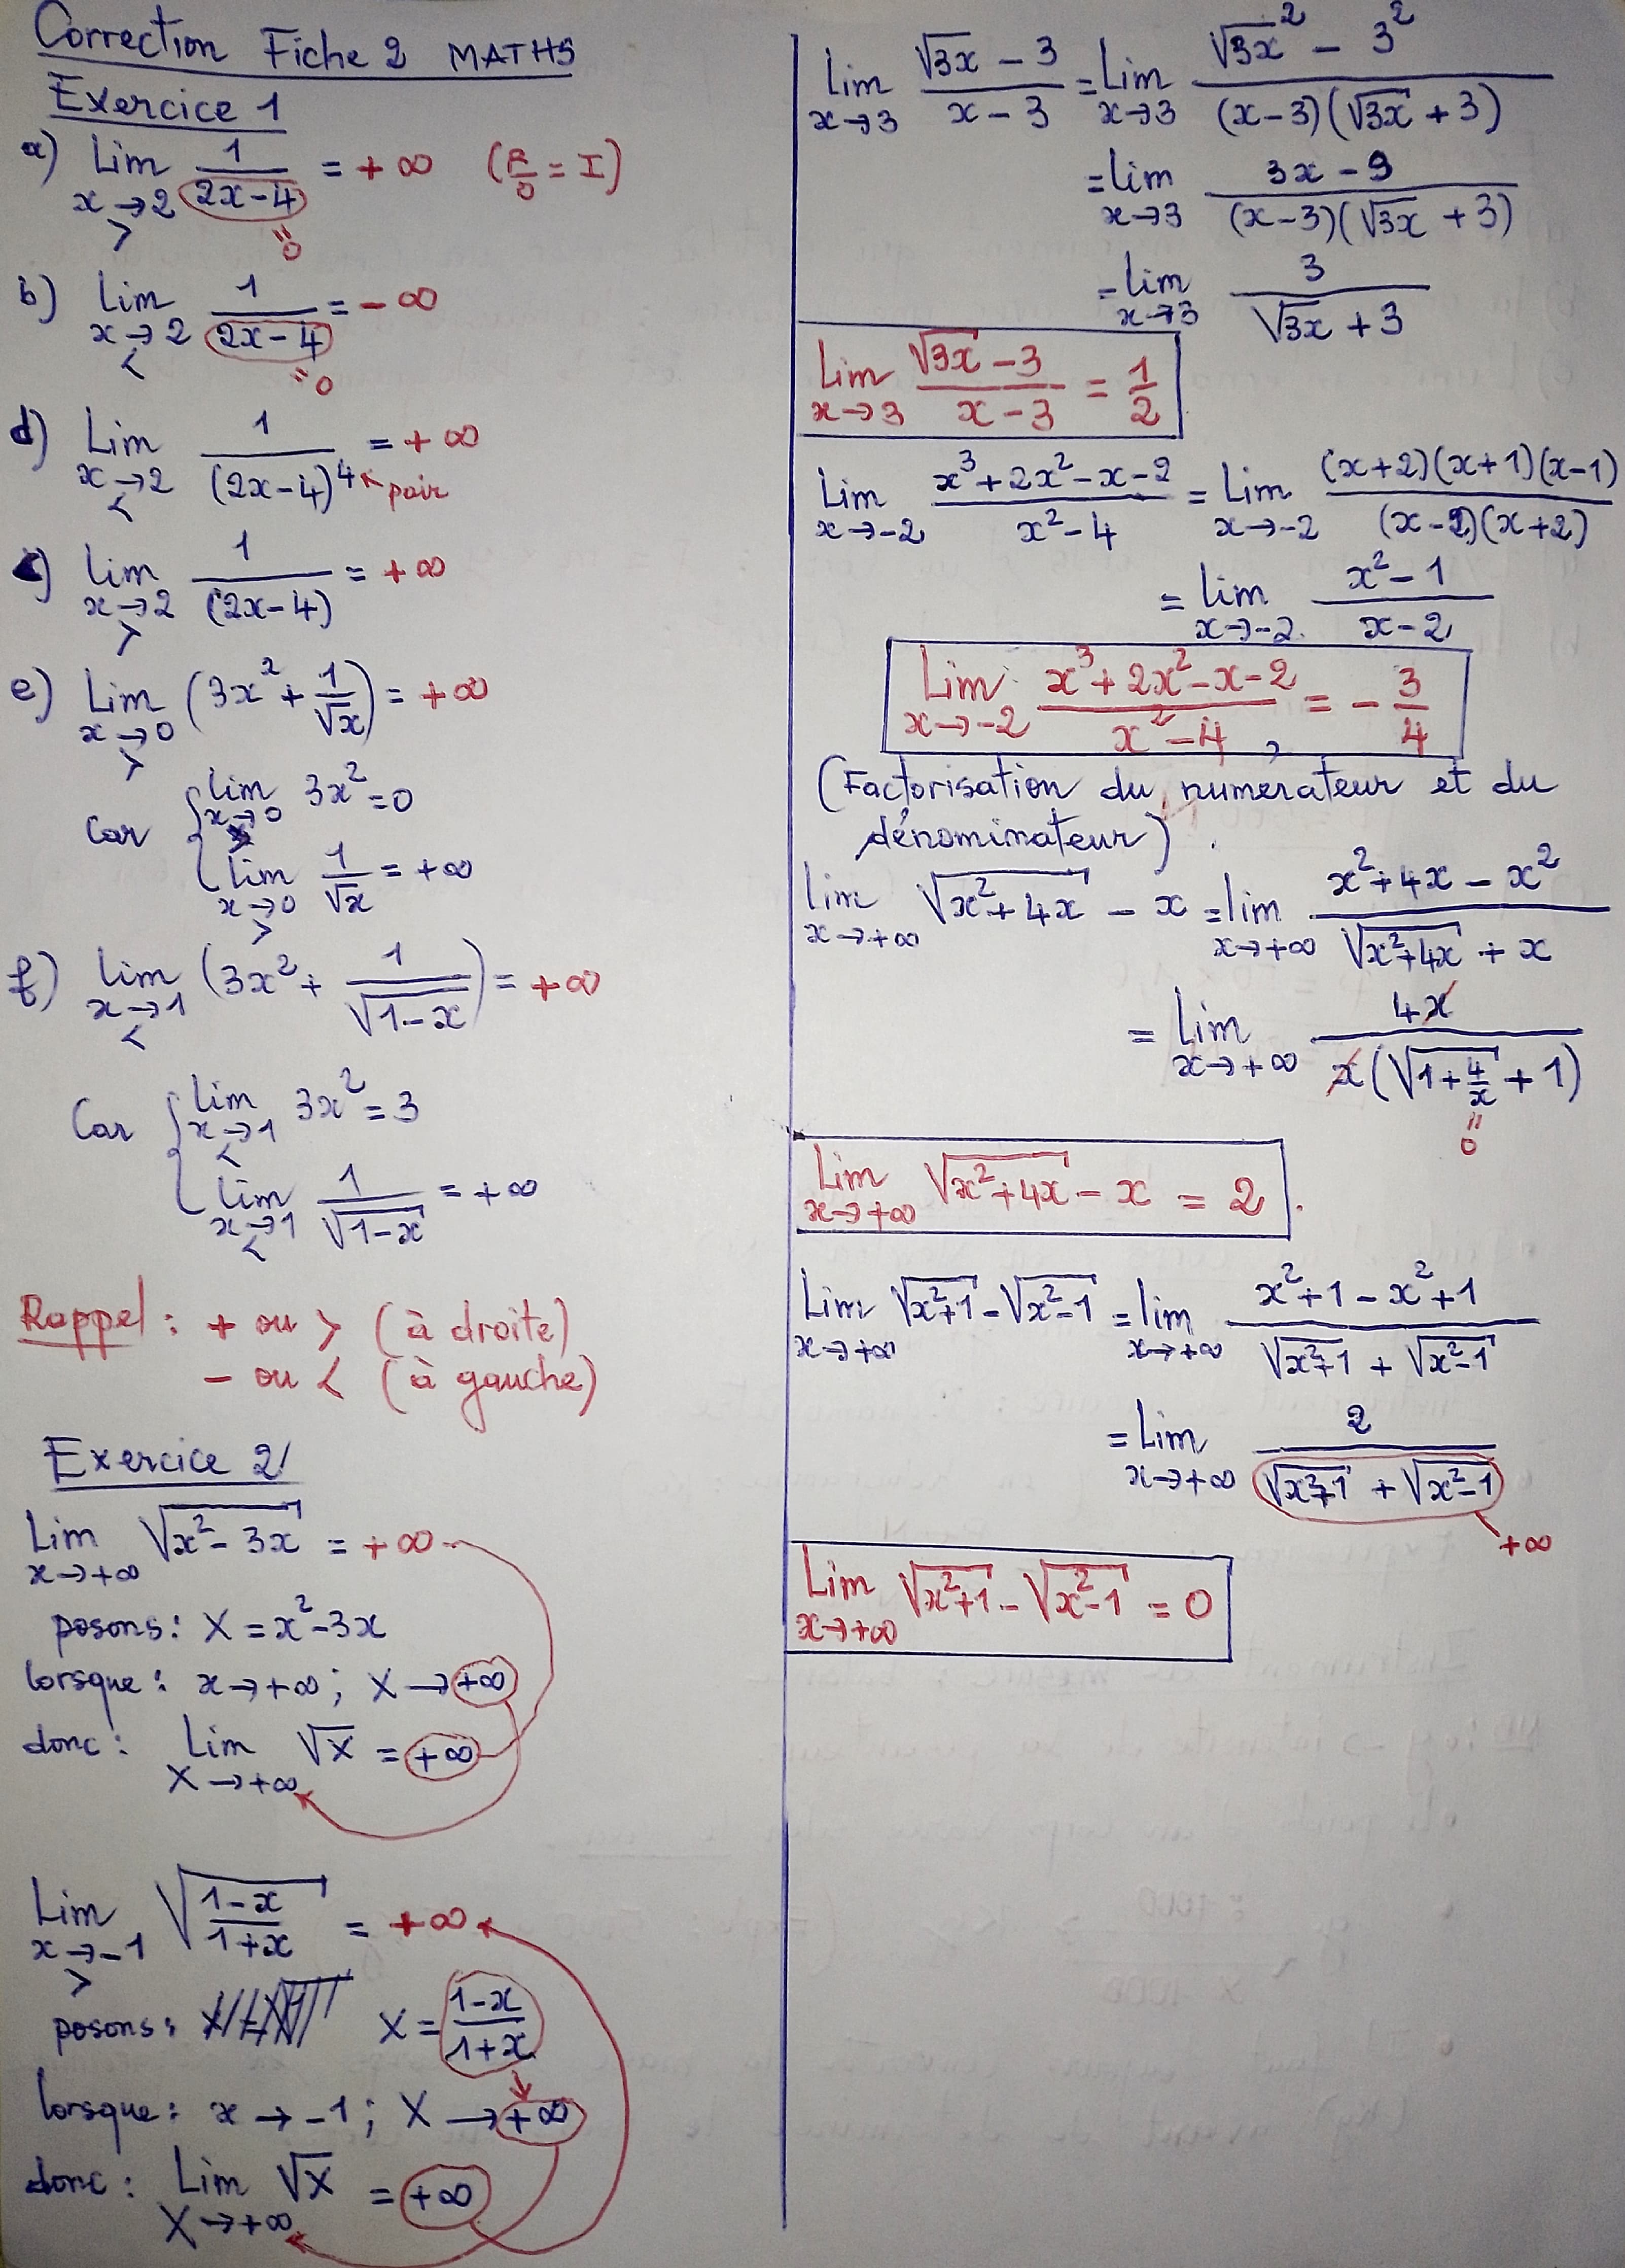 Correction Fiche 2 MATHS
Exercice 1
a) Lim x→2 > 1/(2x-4) = +∞ (F/0 = I)
"0
b) Lim x→2 < 1/(2x-4) = -∞
"0
d) Lim x→2 < 1/(2x-4)^4 = +∞
pair
c) Lim x→2 > 1/(2x-4) = +∞
e) Lim x→0 > (3x² + 1/√x) = +∞
Car { lim x→0 3x² = 0
lim x→0 > 1/√x = +∞
f) lim x→1 < (3x² + 1/√(1-x)) = +∞
Car { lim x→1 < 3x² = 3
lim x→1 < 1/√(1-x) = +∞
Rappel : + ou > (à droite)
- ou < (à gauche)
Exercice 2
Lim x→+∞ √(x²-3x) = +∞
posons: X = x²-3x
lorsque: x→+∞ ; X→+∞
donc: Lim X→+∞ √X = +∞
Lim x→-1 > √((1-x)/(1+x)) = +∞
posons: X = (1-x)/(1+x)
lorsque: x→-1 ; X→+∞
donc: Lim X→+∞ √X = +∞
Lim x→3 (√3x - 3)/(x-3) = Lim x→3 (√3x² - 3²)/((x-3)(√3x + 3))
= lim x→3 (3x-9)/((x-3)(√3x + 3))
= lim x→3 3/(√3x + 3)
Lim x→3 (√3x - 3)/(x-3) = 1/2
Lim x→-2 (x³+2x²-x-2)/(x²-4) = Lim x→-2 ((x+2)(x+1)(x-1))/((x-2)(x+2))
= lim x→-2 (x²-1)/(x-2)
Lim x→-2 (x³+2x²-x-2)/(x²-4) = -3/4
(Factorisation du numerateur et du
dénominateur).
lim x→+∞ √(x²+4x) - x = lim x→+∞ (x²+4x-x²)/(√(x²+4x) + x)
= lim x→+∞ 4x/(x(√(1+4/x) + 1))
"0
Lim x→+∞ √(x²+4x) - x = 2.
Lim x→+∞ √(x²+1) - √(x²-1) = lim x→+∞ (x²+1-x²+1)/(√(x²+1) + √(x²-1))
= Lim x→+∞ 2/(√(x²+1) + √(x²-1))
+∞
Lim x→+∞ √(x²+1) - √(x²-1) = 0